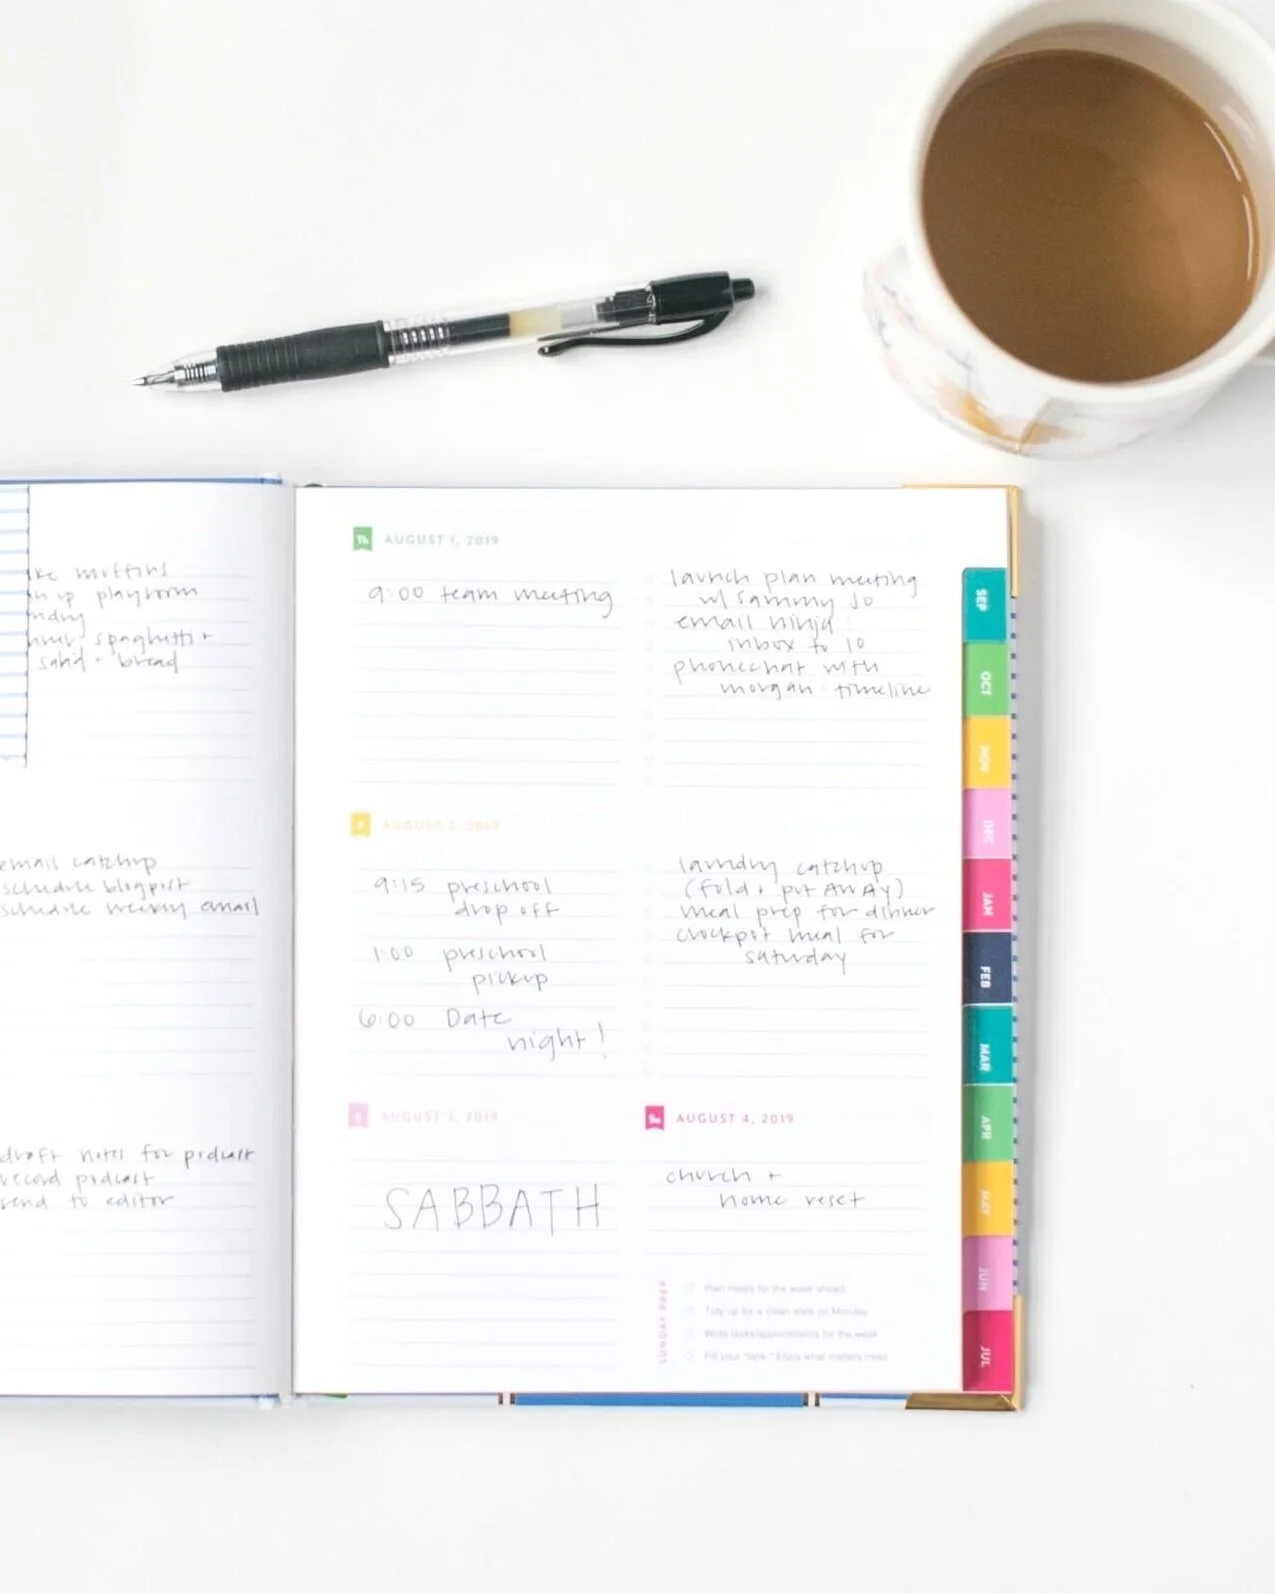 muffins
up playroom
spaghetti +
bread
email catchup
schedule blogpost
schedule weekly email
draft notes for podcast
record podcast
send to editor
Th AUGUST 1, 2019
9:00 team meeting
launch plan meeting
w/ Sammy Jo
email ninja:
inbox to 10
phonechat with
morgan - timeline
AUGUST 2, 2019
9:15 preschool
drop off
1:00 preschool
pickup
6:00 Date
night!
laundry catchup
(fold + put AWAY)
meal prep for dinner
crockpot meal for
saturday
AUGUST 3, 2019
SABBATH
Su AUGUST 4, 2019
church +
home reset
SUNDAY PREP
Plan meals for the week ahead
Tidy up for a clean slate on Monday
Write tasks/appointments for the week
Fill your "tank." Enjoy what matters most.
SEP
OCT
NOV
DEC
JAN
FEB
MAR
APR
MAY
JUN
JUL